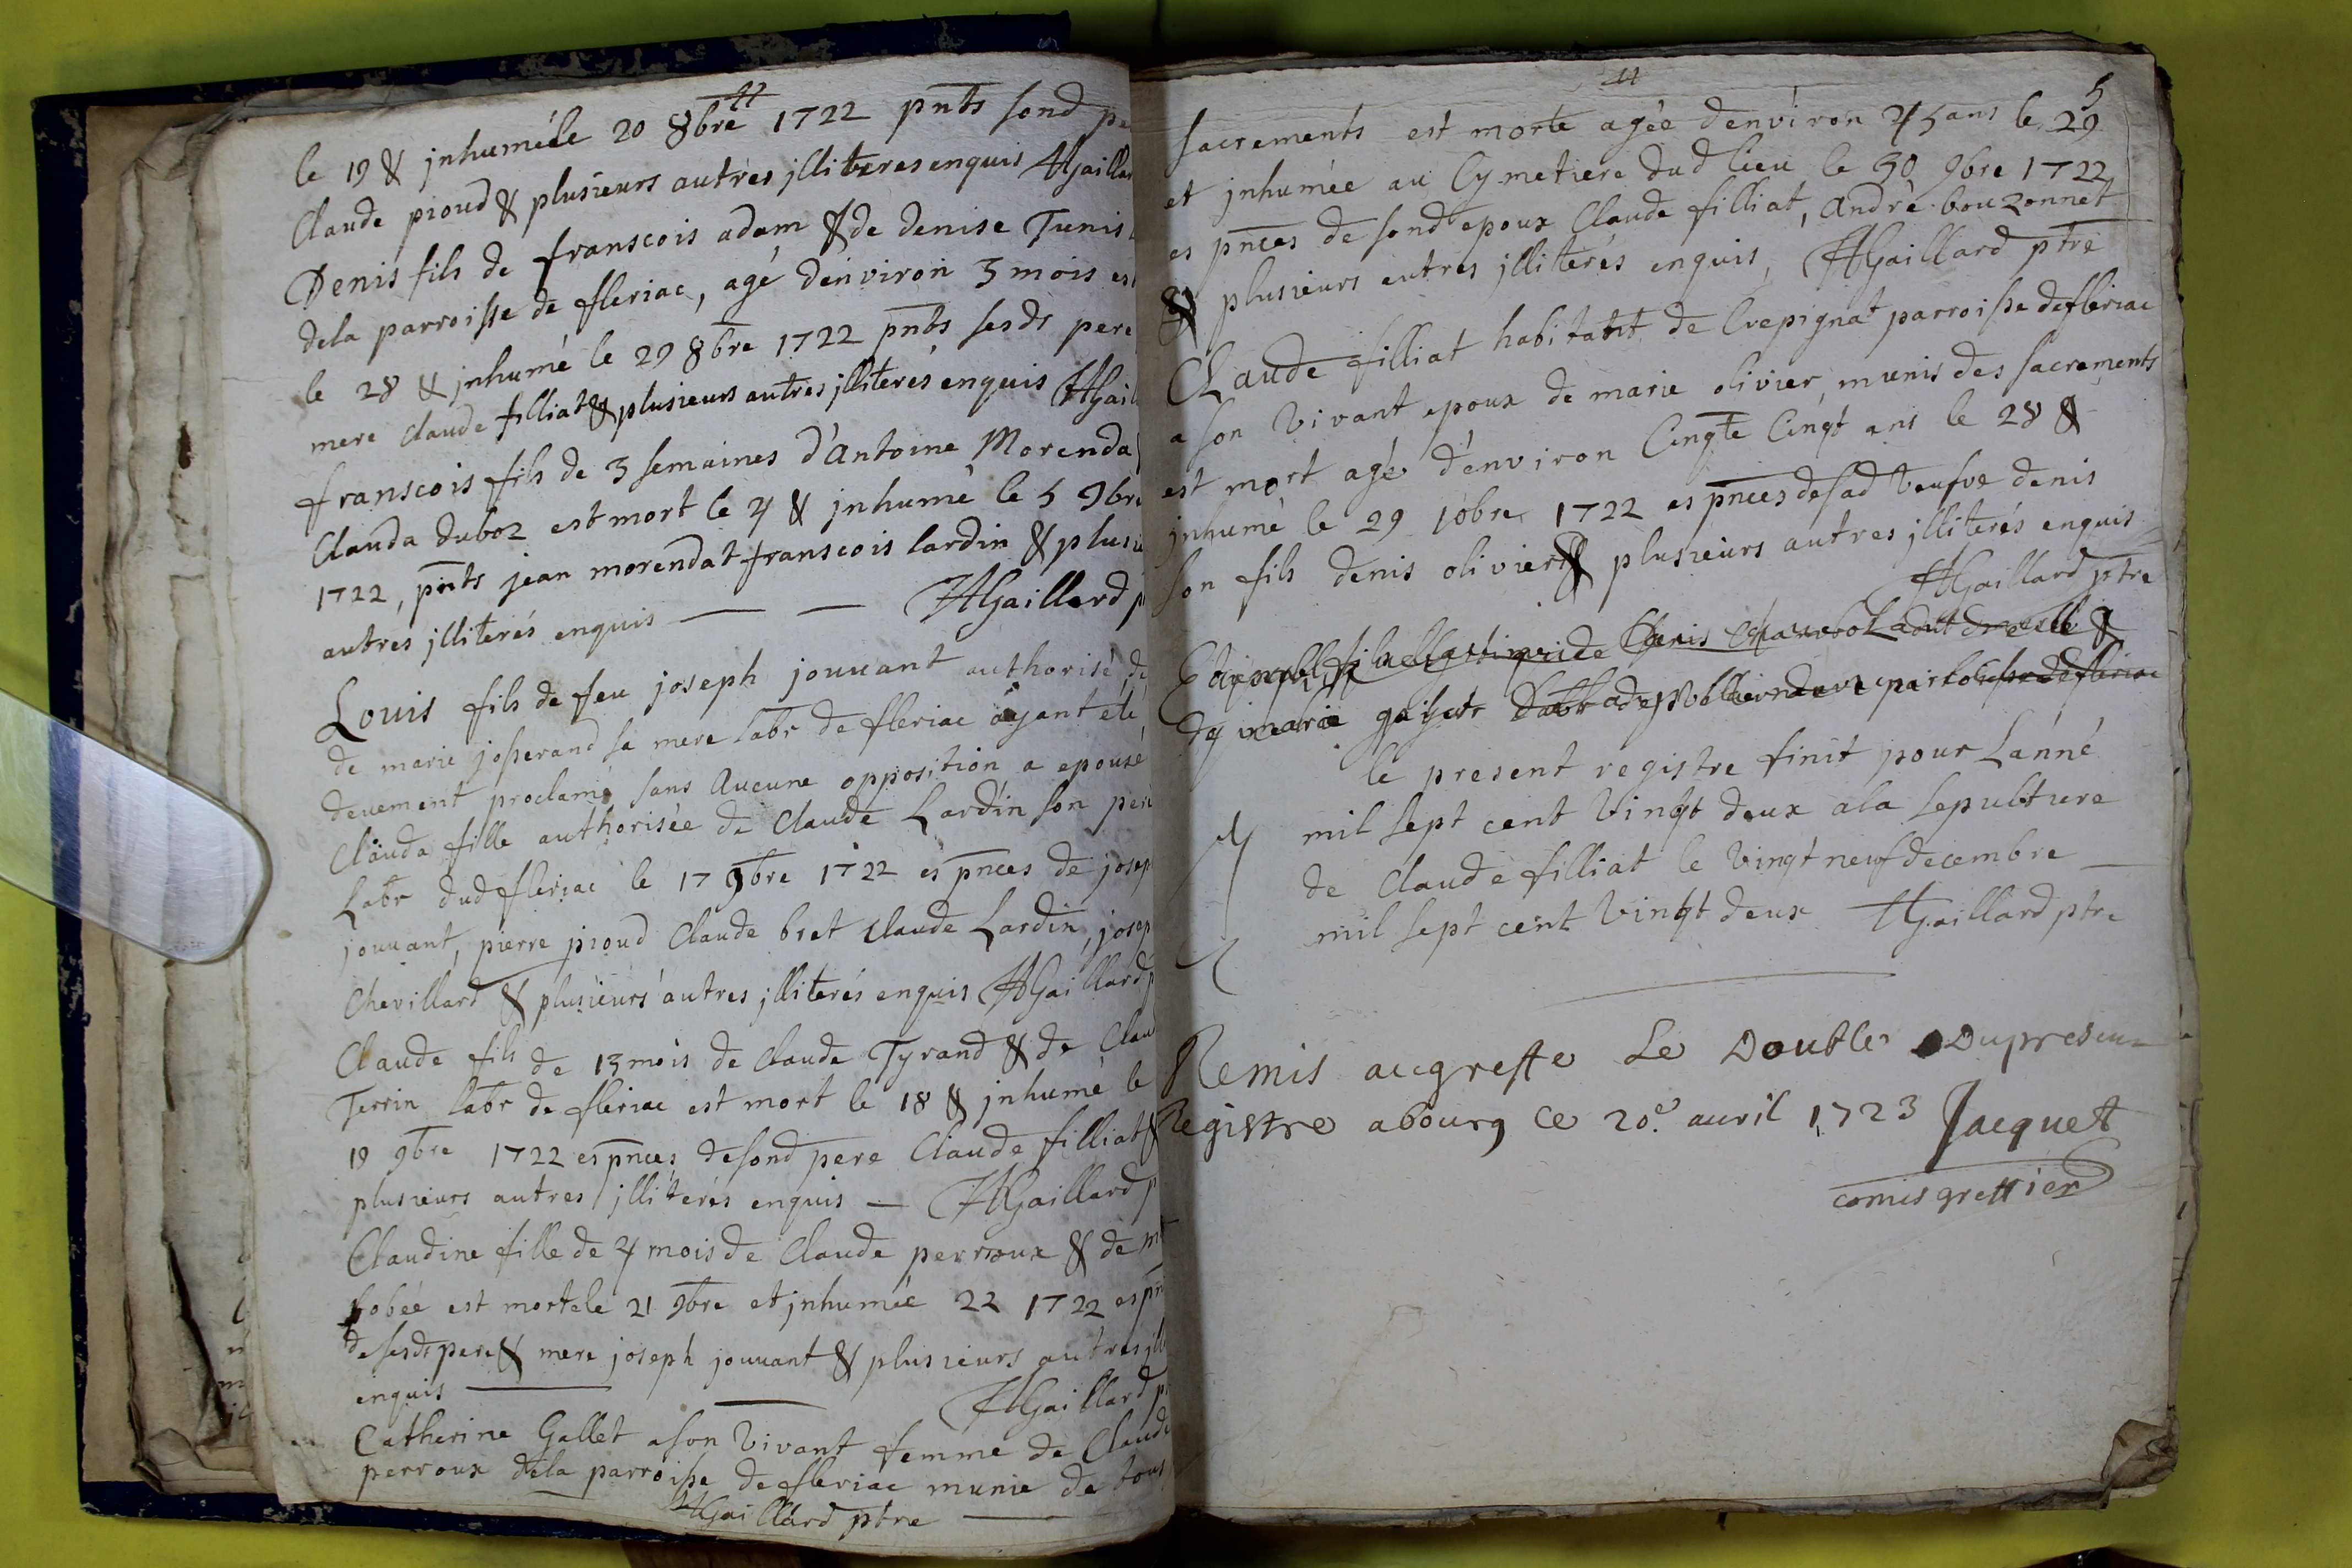 le 19 & jnhuméle 20 8bre 1722 pnts sond pe
Claude pioud & plusieurs autres jlliteres enquis HGaillar
Denis fils de franscois adam & de denise Tunis
dela parroisse de fleriac, agé denviron 3 mois est
le 28 & jnhumé le 29 8bre 1722 pnts sesds pere
mere claude filliat & plusieurs autres jlliterés enquis HGail
franscois fils de 3 semaines d'Antoine Morenda
Clauda duboz est mort le 4 & jnhumé le 5 9bre
1722, pnts jean morendat franscois lardin & plusie
autres jlliterés enquis — — HGaillard p
Louis fils de feu joseph jouuant authorisé de
de marie josserand sa mere labr de fleriac ayant eté
deuement proclamé sans Aucune opposition a epousé
Claüda fille authorisée de Claude Lardin son pere
Labr dud fleriac le 17 9bre 1722 es pnces de josep
jouuant, pierre pioud Claude bret claude Lardin, josep
Chevillard & plusieurs autres jlliterés enquis HGaillard p
Claude fils de 13 mois de claude Tyrand & de Clau
Terrin labr de fleriac est mort le 18 & jnhumé le
19 9bre 1722 es pnces desond pere Claude filliat &
plusieurs autres jlliterés enquis — HGaillard p
Claudine fille de 4 mois de Claude perroux & de m
fobée est mortele 21 9bre et jnhumée 22 1722 es pn
de sesds pere & mere joseph jouuant & plusieurs autres jlli
enquis — — HGaillard p
Catherine Gallet ason Vivant femme de Claude
perroux dela parroisse de fleriac munie de tous
HGaillard ptre —
5
sacrements est morte agée denviron 45 ans le 29
et jnhumée au Cymetiere dud lieu le 30 9bre 1722
es pnces de sond epoux Claude filliat, André bouzonnet
& plusieurs autres jlliterés enquis, HGaillard ptre
Claude filliat habitant de Crepignat parroisse defleriac
a son Vivant epoux de marie olivier, munis des sacrements
est mort agé d'environ Cinqte Cinqt ans le 28 &
jnhumé le 29 10bre 1722 es pnces desad Veufve denis
son fils denis olivier & plusieurs autres jlliterés enquis
HGaillard ptre
de marie parroisse de fleriac
le present registre finit pour Lánné
mil sept cent Vingt deux ala sepulture
de Claude filliat le Vingt neuf decembre —
mil sept cent Vingt deux HGaillard ptre
Remis augreffe Le Double Dupresen
Registre abourg ce 20e auril 1723 Jacquet
comis greffier